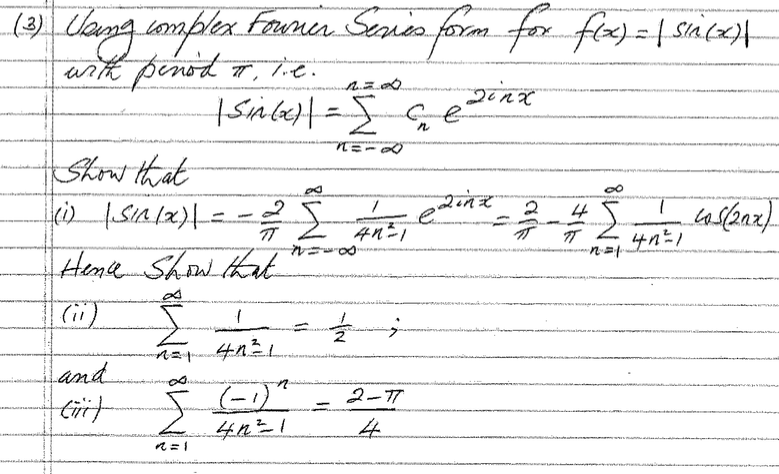 (3) Using complex Fourier Series form for f(x) = | sin(x)|
with period π, i.e.
|Sin(x)| = ∑_{n=-∞}^{n=∞} c_n e^{2inx}
Show that
(i) |Sin(x)| = -2/π ∑_{n=-∞}^{∞} 1/(4n²-1) e^{2inx} = 2/π - 4/π ∑_{n=1}^{∞} 1/(4n²-1) cos(2nx)
Hence Show that
(ii) ∑_{n=1}^{∞} 1/(4n²-1) = 1/2 ;
and
(iii) ∑_{n=1}^{∞} (-1)^n/(4n²-1) = (2-π)/4